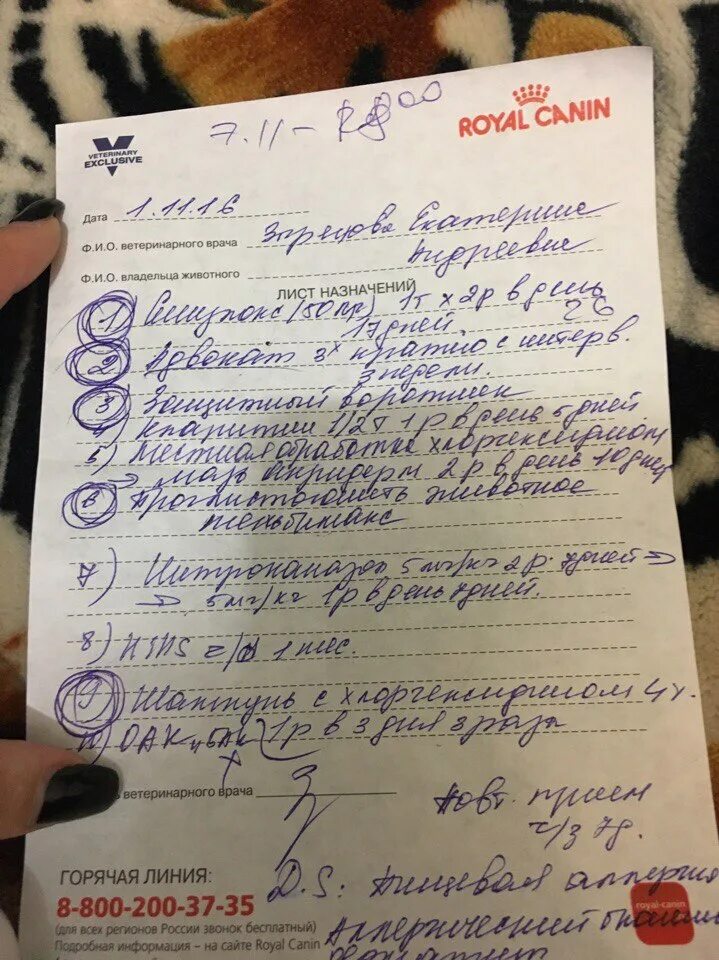 7.11 –
ROYAL CANIN
VETERINARY
EXCLUSIVE
Дата 1.11.16
Ф.И.О. ветеринарного врача Екатерина
Андреевна
Ф.И.О. владельца животного
ЛИСТ НАЗНАЧЕНИЙ
1) (50 1т х 2р в день
17 дней.
2) Адвокат 3х кратно с интерв.
3 недели.
3) Защитный воротник
4) Кларитин 1/2т 1р в день 5 дней
5) Местная обработка хлоргексидином
→ мазь акридерм 2р в день 10 дней
6) животное
7) 5мг/кг 2р. 7дней →
→ 5мг/кг 1р в день 7дней.
8) 1 мес.
9) Шампунь с хлоргексидином 4%.
10) ОАК 1р в 3 дня 3 раза
ветеринарного врача
Повт. прием
ч/з 7д.
ГОРЯЧАЯ ЛИНИЯ:
8-800-200-37-35
(для всех регионов России звонок бесплатный)
Подробная информация – на сайте Royal Canin
D.S: Пищевая
royal-canin
Аллергический